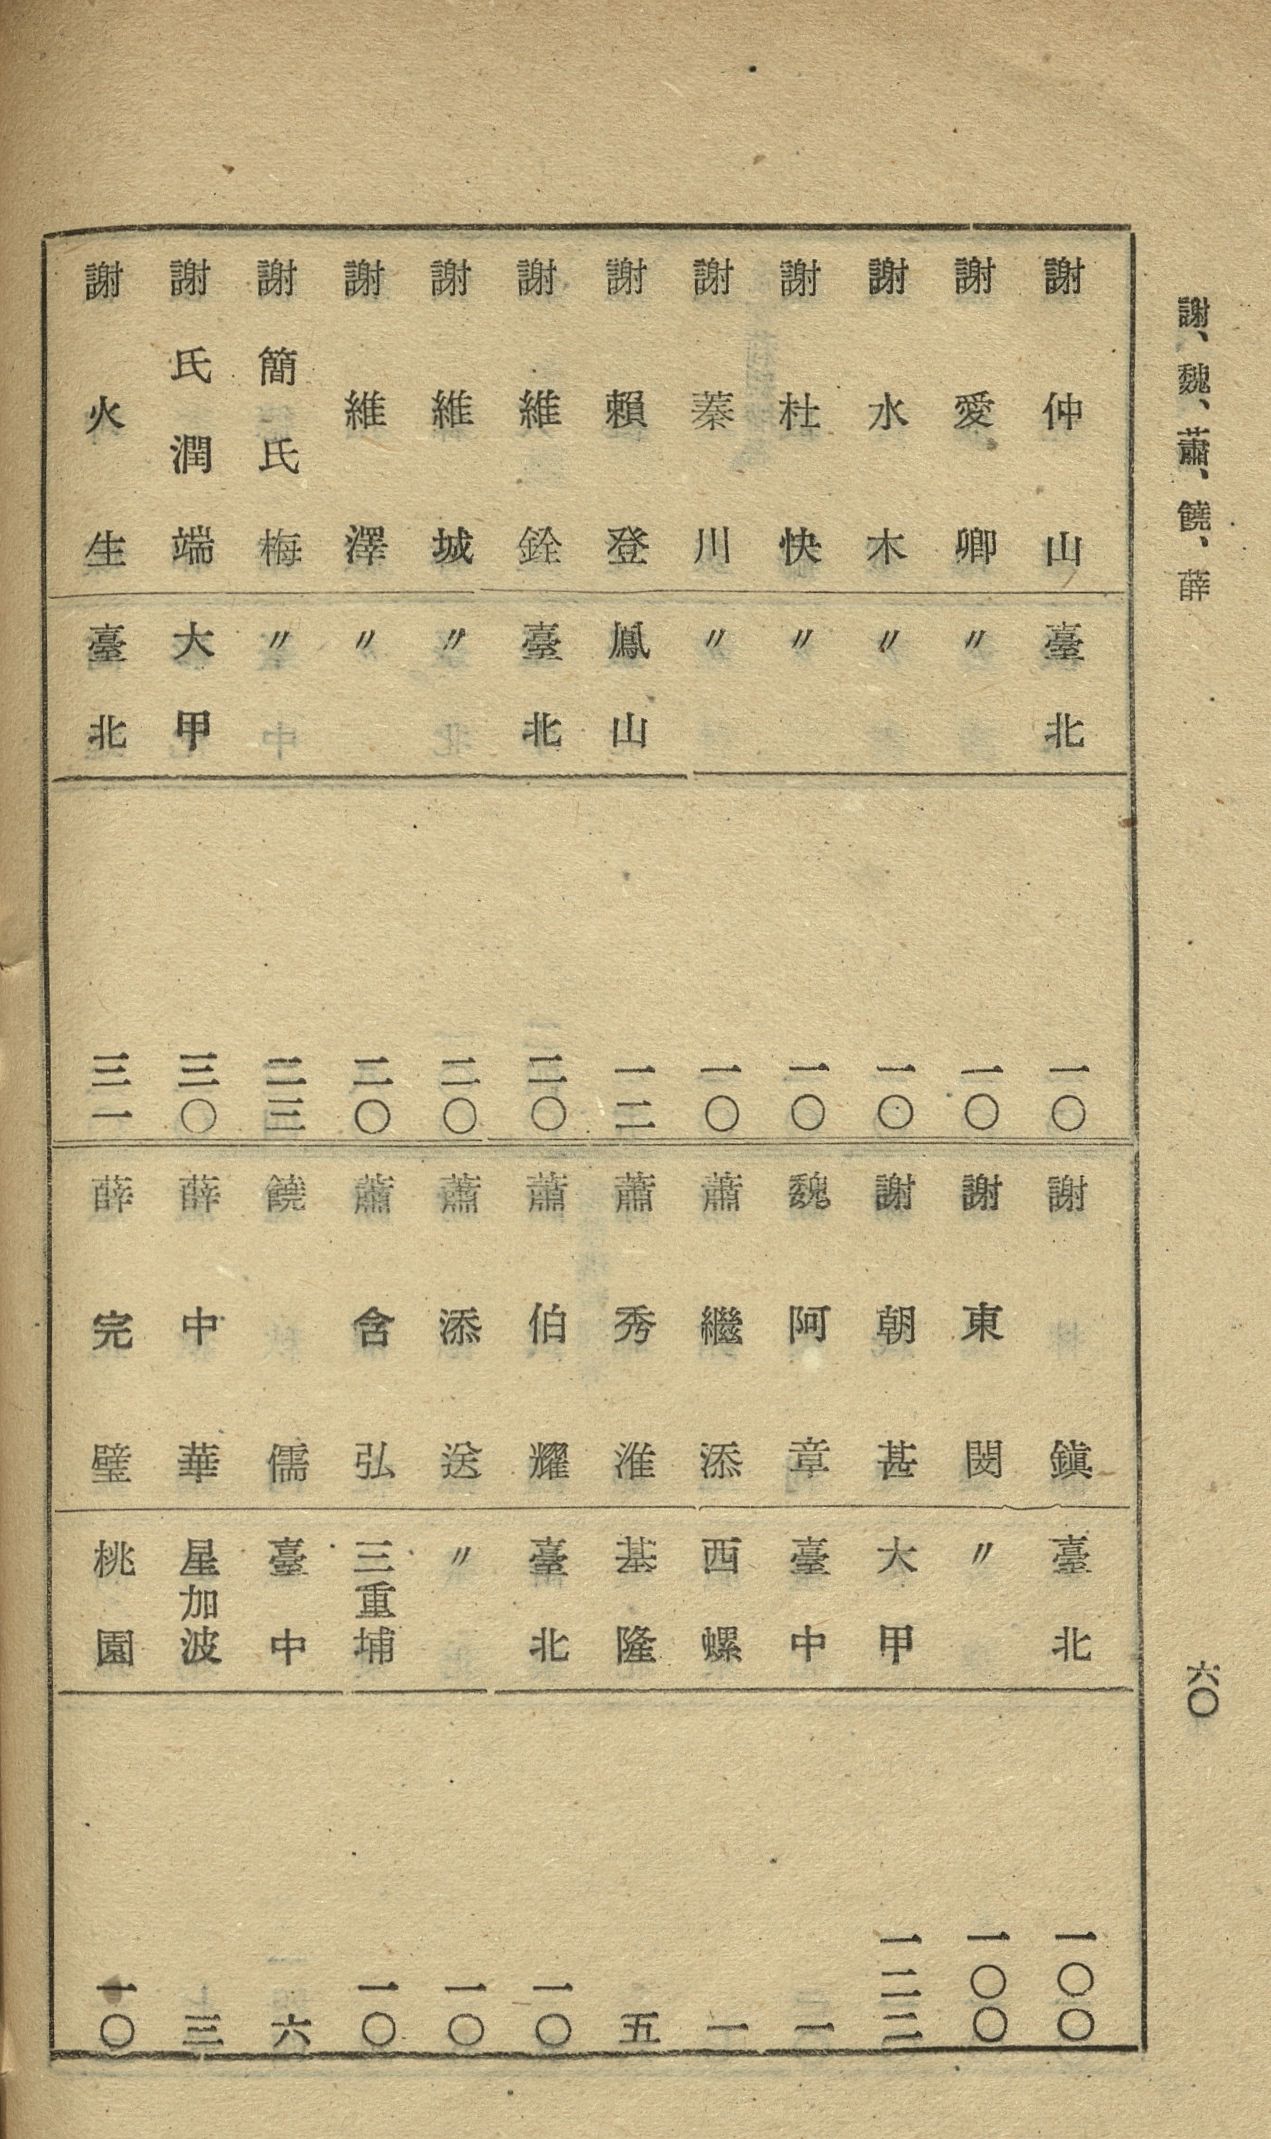 謝、魏、蕭、饒、薛
六〇
謝仲山 臺北 一〇
謝愛卿 〃 一〇
謝水木 〃 一〇
謝杜快 〃 一〇
謝蓁川 〃 一〇
謝賴登 鳳山 一二
謝維銓 臺北 二〇
謝維城 〃 二〇
謝維澤 〃 二〇
謝簡氏梅 〃 二三
謝氏潤端 大甲 三〇
謝火生 臺北 三一
謝鎭 臺北 一〇〇
謝東閔 〃 一〇〇
謝朝甚 大甲 一二二
魏阿章 臺中 一
蕭繼添 西螺 一
蕭秀淮 基隆 五
蕭伯耀 臺北 一〇
蕭添送 〃 一〇
蕭含弘 三重埔 一〇
饒儒 臺中 六
薛中華 星加波 三
薛完璧 桃園 一〇